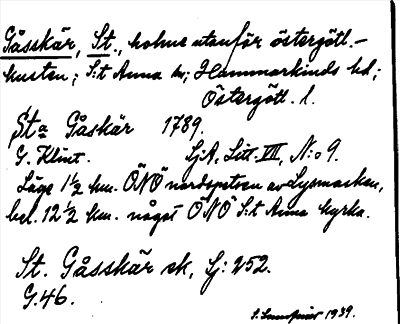 Gåsskär, St., holme utanför östergötl.-
kusten; S:t Anna sn; Hammarkinds hd;
Östergötl. l.
Sta Gåskär 1789.
G. Klint. SjA, Litt. VII, N:o 9.
Läge 1½ km. ÖNÖ nordspetsen av Lysmacken,
bel. 12½ km. något ÖNÖ S:t Anna kyrka.
St. Gåsskär sk, Sj: 252.
G.46.
1939.